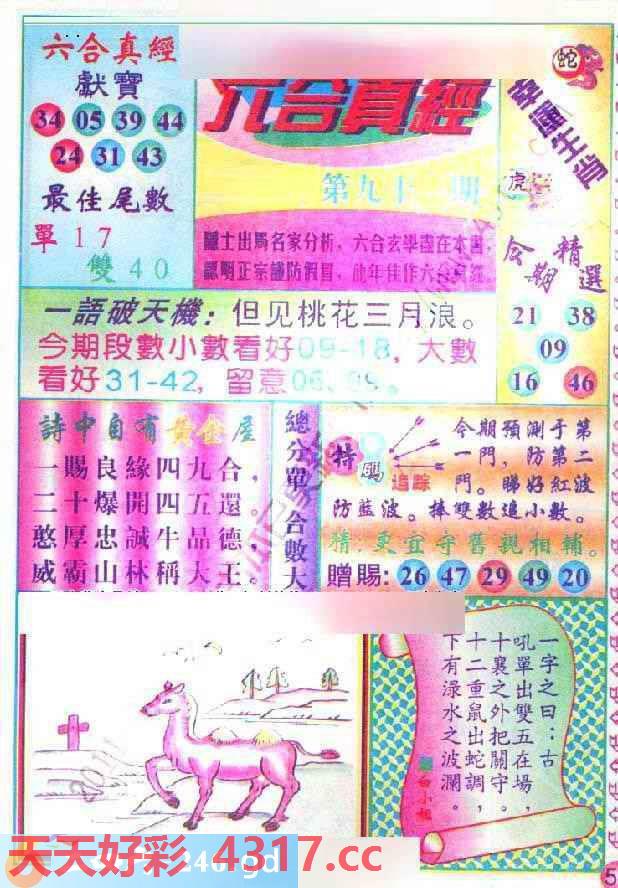 六合真經
獻寶
34 05 39 44
24 31 43
最佳尾數
單 17
雙 40
六合真經
第九十二期
隱士出馬名家分析，六合玄學盡在本書，
蛇
幸運生肖
虎
今期精選
21 38
09
16 46
一語破天機：但见桃花三月浪。
今期段數小數看好09-18，大數
看好31-42，留意06、09。
詩中自有黃金屋
一賜良緣四九合，
二十爆開四五還。
憨厚忠誠牛品德，
威霸山林稱大王。
總分單 合數大
特碼
追踪
今期預測于第
一門，防第二
門。睇好紅波
防藍波。捧雙數追小數。
精：更宜守舊親相輔。
贈賜：26 47 29 49 20
一字之曰：古
吼單出雙五在場，
十襄之外把關守。
十二重鼠出蛇調，
下有渌水之波瀾。
白小姐
天天好彩 4317.cc
246 gd
5